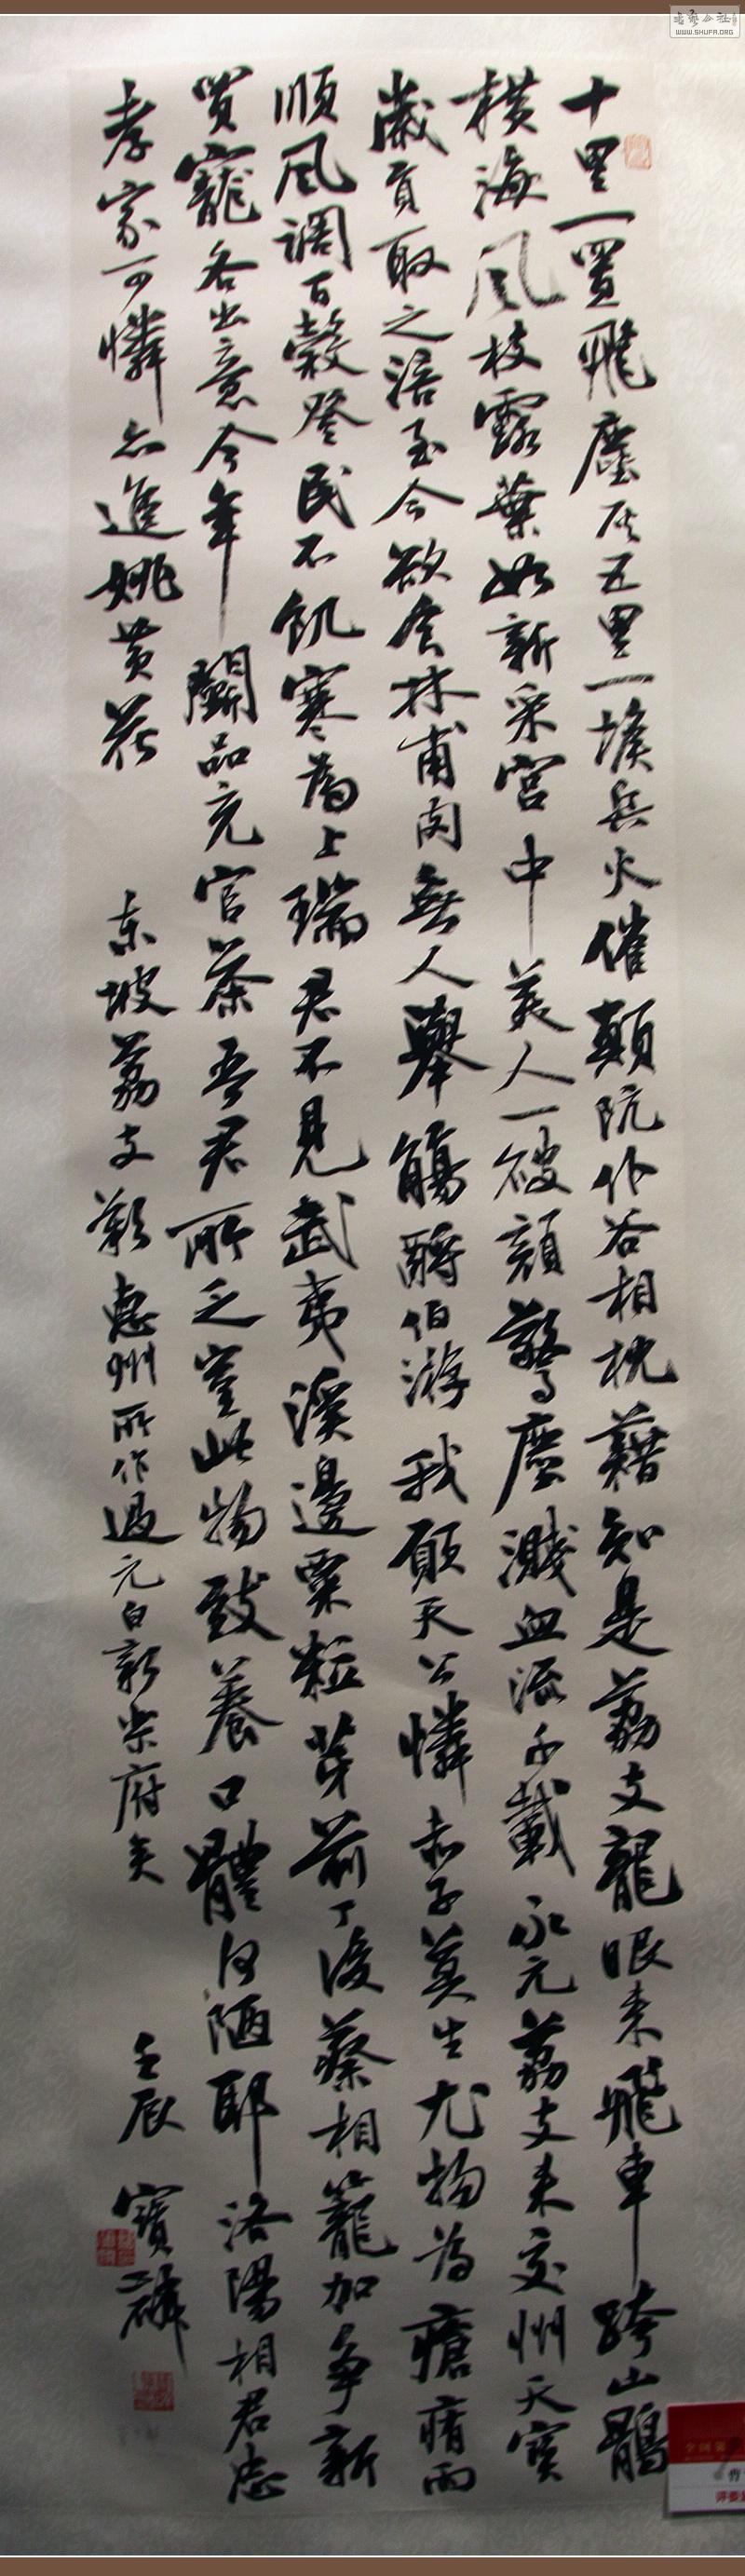 十里一置飛塵灰五里一堠兵火催顛阬仆谷相枕藉知是荔支龍眼来飛車跨山鶻
橫海風枝露葉如新采宮中美人一破顏驚塵濺血流千載永元荔支来交州天寶
歲貢取之涪至今欲食林甫肉無人舉觴酹伯游我願天公憐赤子莫生尤物為瘡痏雨
順風調百穀登民不飢寒為上瑞君不見武夷溪邊粟粒芽前丁後蔡相籠加爭新
買寵各出意今年鬭品充官茶吾君所乏豈此物致養口體何陋耶洛陽相君忠
孝家可憐亦進姚黃花 東坡荔支歎惠州所作過元白新樂府矣 壬辰 寶麟
WWW.SHUFA.ORG